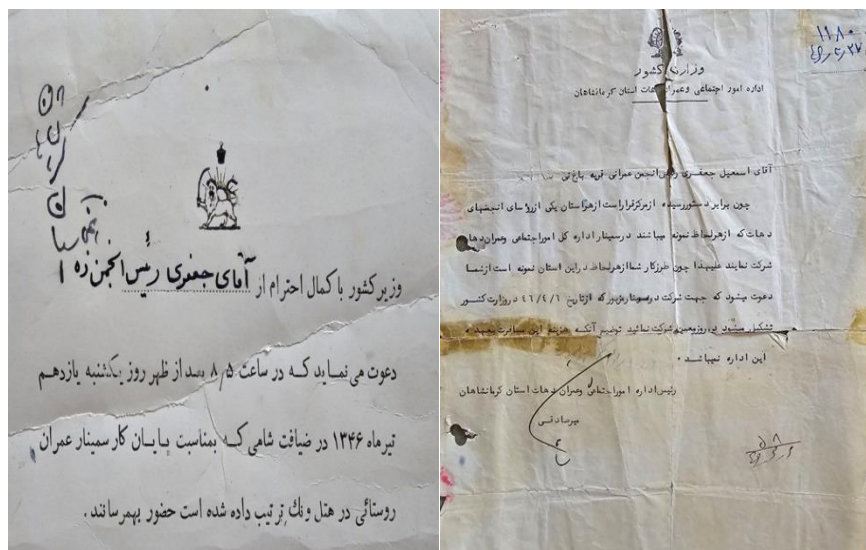 وزیر کشور با کمال احترام از آقای جعفری رئیس انجمن ده
دعوت می نماید که در ساعت ۸٫۵ بعد از ظهر روز یکشنبه یازدهم
تیرماه ۱۳۴۶ در ضیافت شامی که بمناسبت پایان کار سمینار عمران
روستائی در هتل ونک ترتیب داده شده است حضور بهمرسانند .
۱۱۸۰
وزارت کشور
اداره امور اجتماعی وعمران دهات استان کرمانشاهان
آقای اسمعیل جعفری رئیس انجمن عمرانی قریه باغ نی
چون برابر دستور رسیده از مرکز قرار است از هر استان یکی از رؤسای انجمنهای
دهات که از هر لحاظ نمونه میباشند در سمینار اداره کل امور اجتماعی وعمران دهات
شرکت نمایند علیهذا چون طرز کار شما از هر لحاظ در این استان نمونه است از شما
دعوت میشود که جهت شرکت در سمینار مزبور که از تاریخ ۴۶/۴/۶ در وزارت کشور
تشکیل میشود در روز معین شرکت نمائید توضیح آنکه هزینه این مسافرت بعهده
این اداره میباشد .
رئیس اداره امور اجتماعی وعمران دهات استان کرمانشاهان
میرصادقی